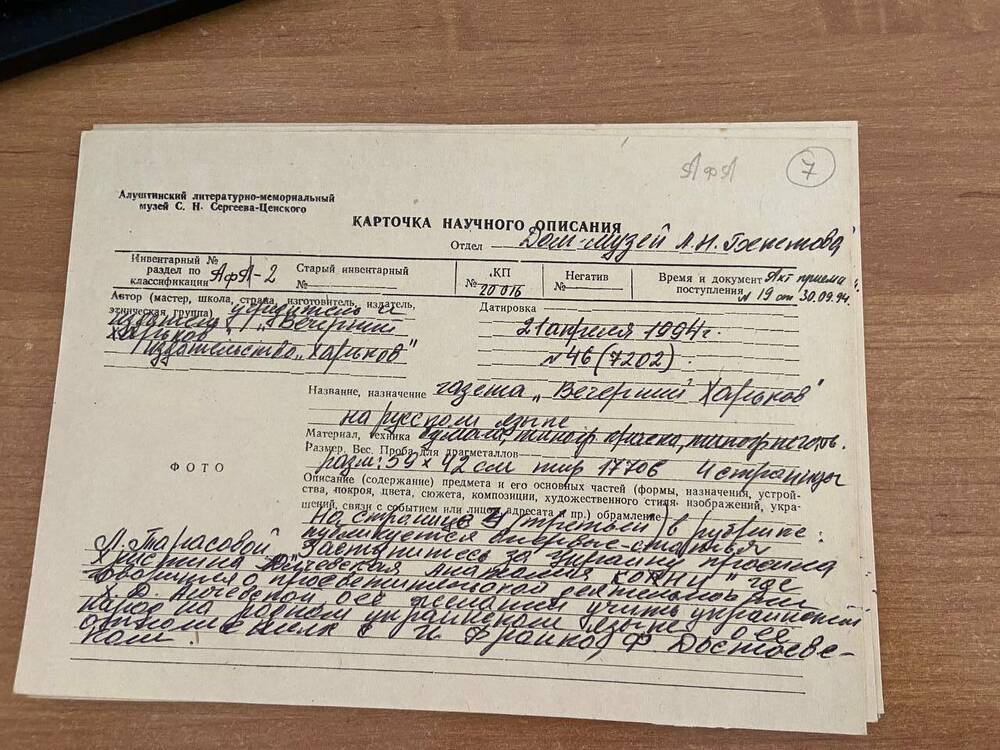 АфА
7
Алуштинский литературно-мемориальный
музей С. Н. Сергеева-Ценского
КАРТОЧКА НАУЧНОГО ОПИСАНИЯ
Отдел Дом-музей А.Н. Бекетова
Инвентарный №
раздел по
классификации АфА-2
Старый инвентарный
№
КП
№ 20016
Негатив
№
Время и документ Акт приема
поступления № 19 от 30.09.94г.
Автор (мастер, школа, страна, изготовитель, издатель,
этническая группа) учредитель и
издатель „Вечерний
Харьков"
Издательство „Харьков"
Датировка
21 апреля 1994г.
№ 46 (7202)
Название, назначение газета „Вечерний Харьков"
на русском языке
Материал, техника бумага, типогр. краска, типогр. печать.
Размер. Вес. Проба для драгметаллов
разм: 59 х 42 см тир 17706 4 страницы
ФОТО
Описание (содержание) предмета и его основных частей (формы, назначения, устрой-
ства, покроя, цвета, сюжета, композиции, художественного стиля изображений, укра-
шений, связи с событием или лицом, адресата и пр.) обрамление
На странице 3 (третьей) в рубрике:
публикуется впервые статья
Л. Тарасовой „Заступитесь за Украину просила
Христина Алчевская Анатолия Кони", где
говорится о просветительской деятельности
Х.Д. Алчевской, её желании учить украинский
народ на родном украинском языке, о её
с И Франко, Ф Достоевс-
ким.